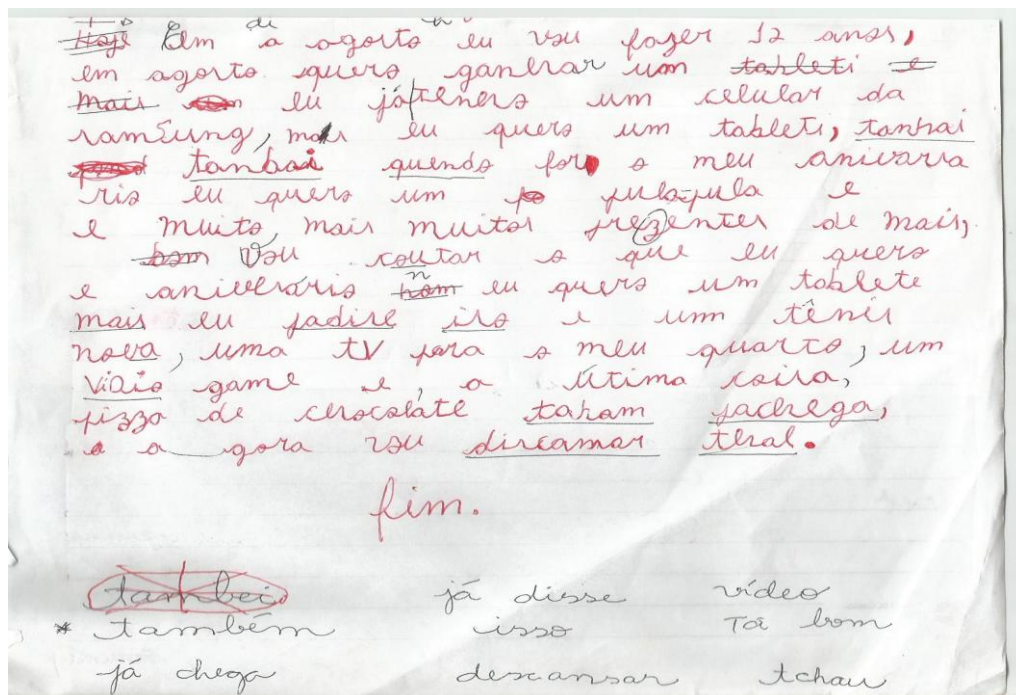 Hoje Em a agosto eu vou fazer 12 anos,
em agosto quero ganhar um tableti e
mais eu já tenero um celular da
samsung, mas eu quero um tableti, tanbai
tanbai quendo for o meu anivaria
rio eu quero um pula-pula e
e muito mais muitos prezentes de mais,
bom Vou contar o que eu quero
e anivelrário nom eu quero um tablete
mais eu jadise iso e um tênis
nova, uma tv para o meu quarto, um
vidio game e, a útima coisa,
pizza de cerocolate tabom jachega,
e a gora vou discamar tlhal.
fim.
tambei já disse vídeo
* também isso Tá bom
já chega descansar tchau